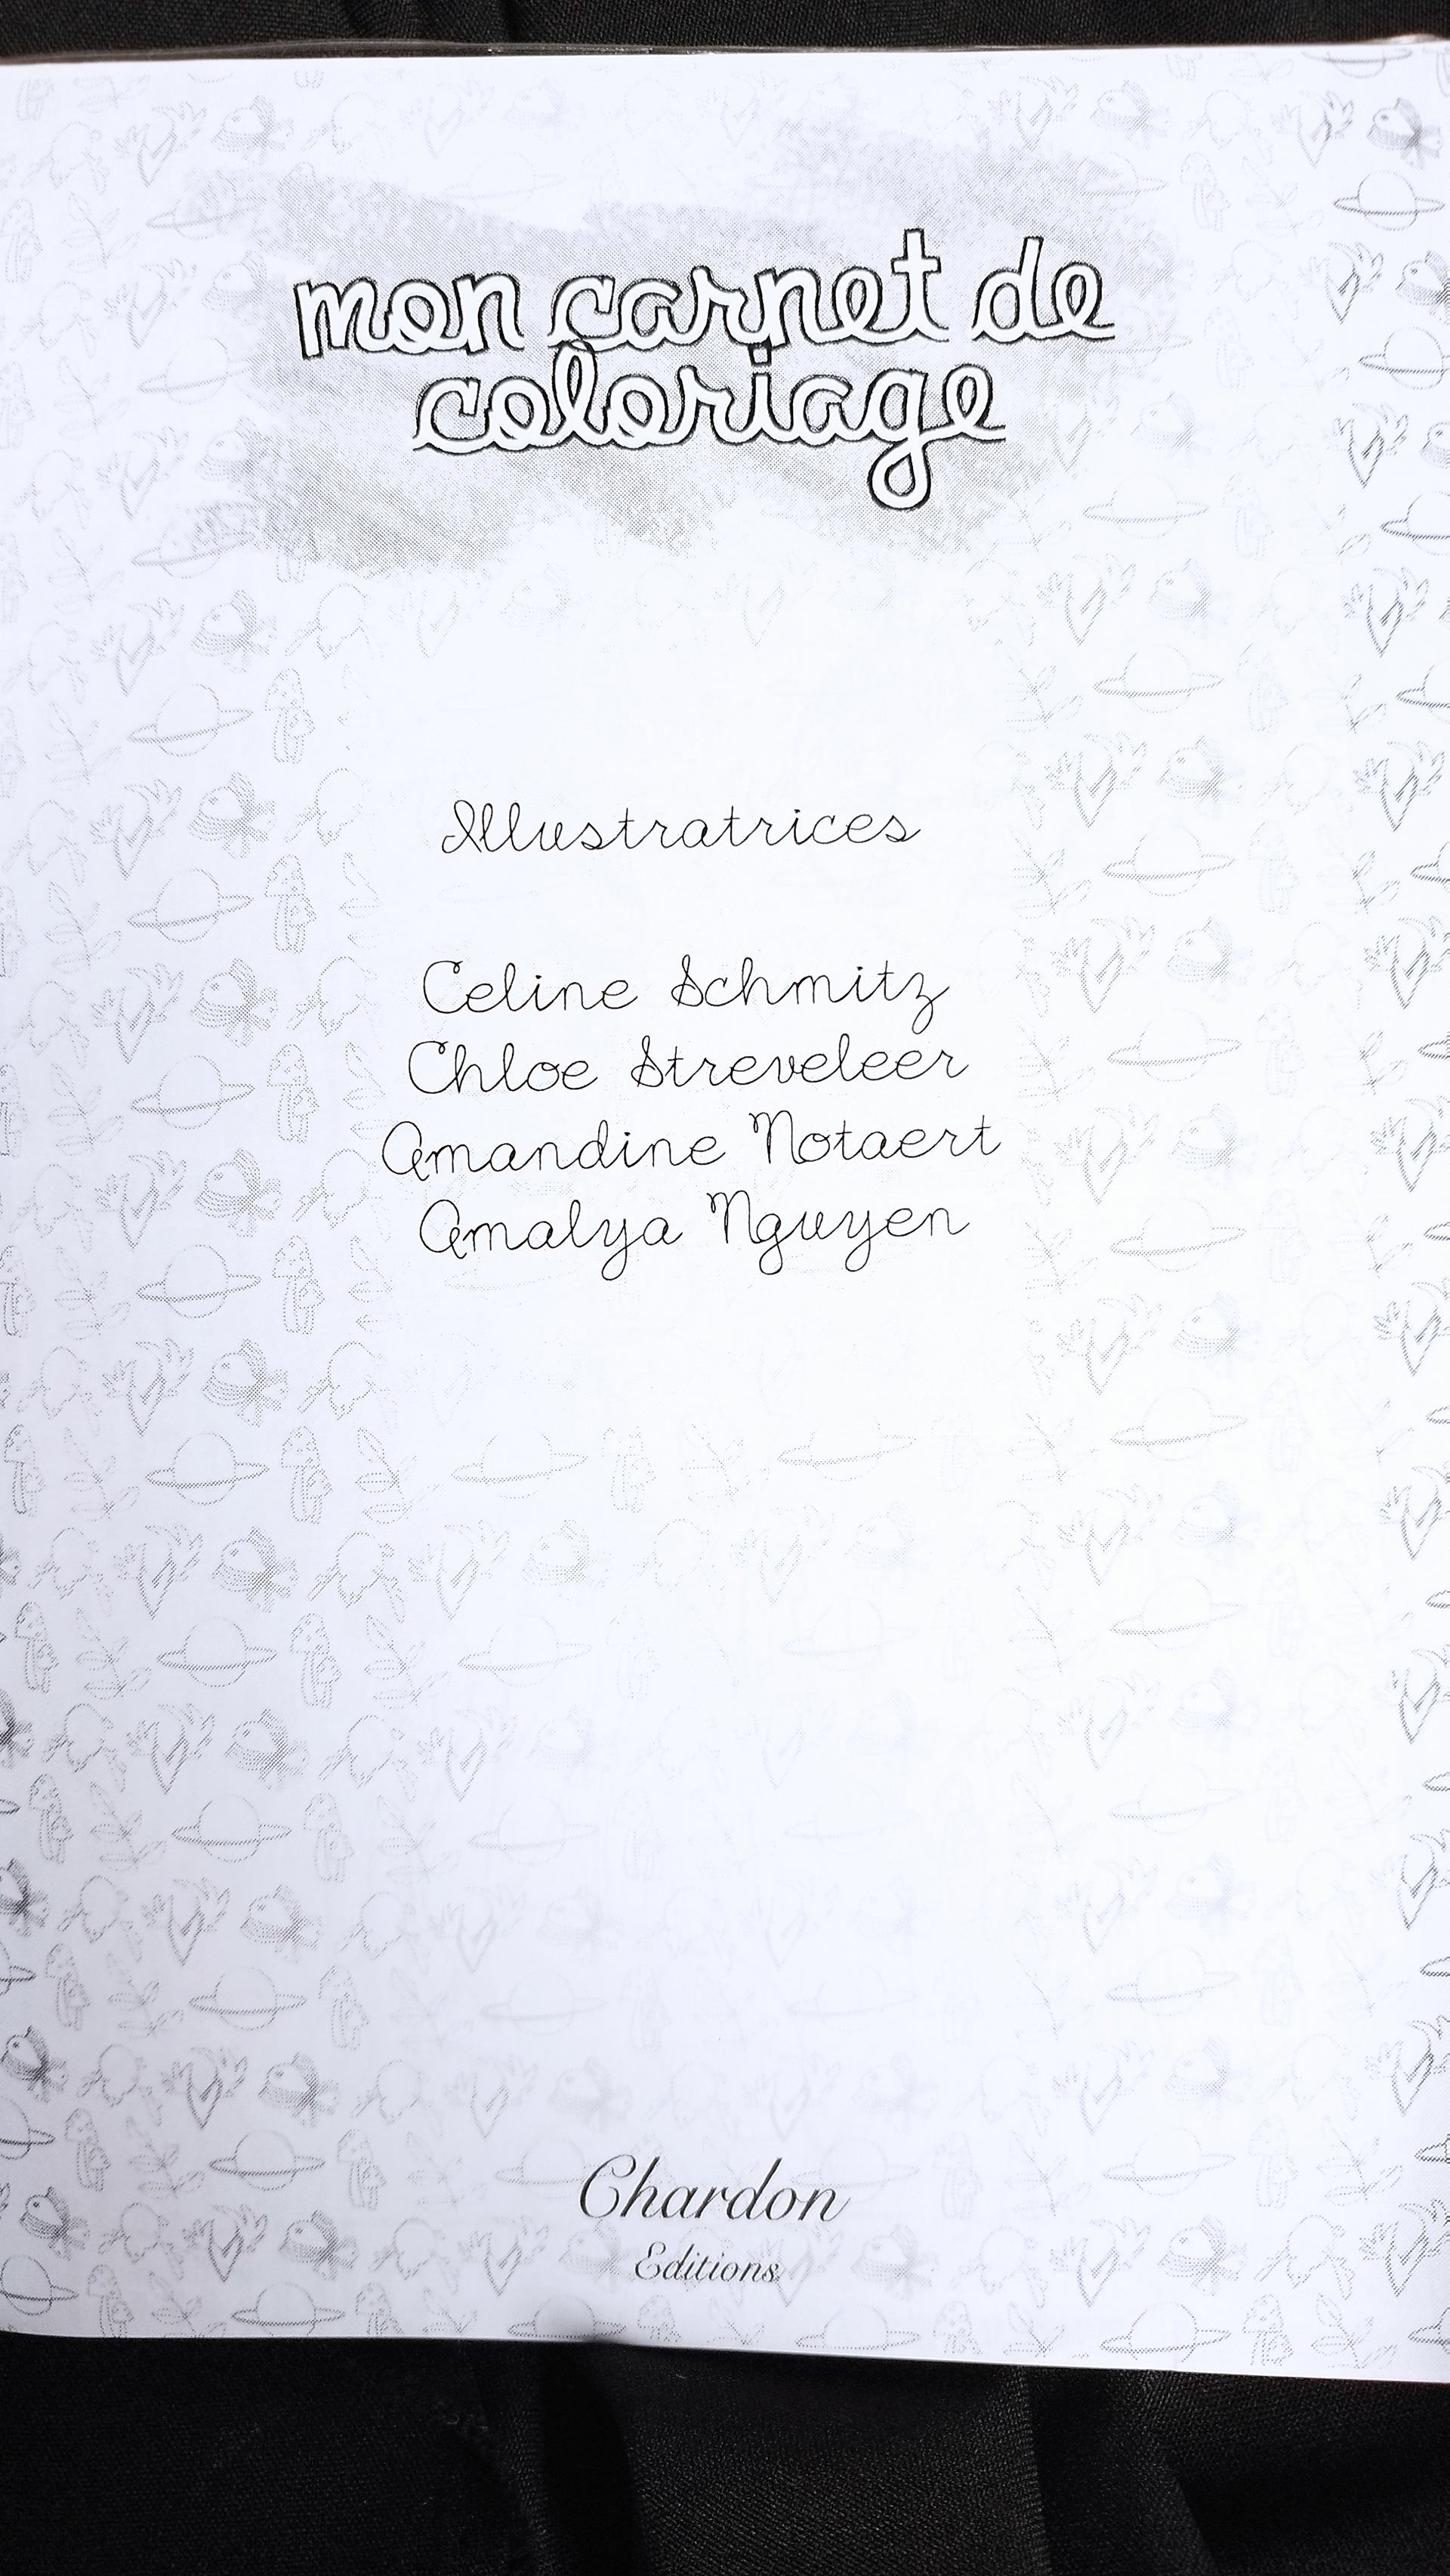 mon carnet de
coloriage
Illustratrices
Celine Schmitz
Chloe Streveleer
Amandine Notaert
Amalya Nguyen
Chardon
Editions